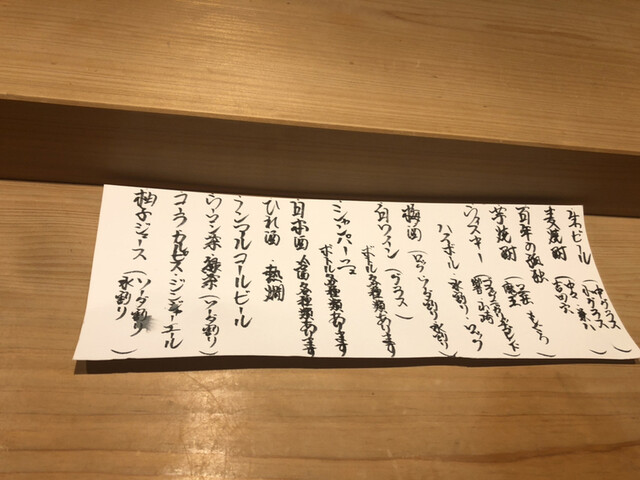 生ビール (中グラス 小グラス
麦焼酎 (中々 吉四六)
百年の孤独
芋焼酎 (魔王
ウイスキー (響 山崎
ハイボール・水割り・ロック)
梅酒 (ロック・ソーダ割り 水割り)
白ワイン (グラス)
ボトル各種類あります
シャンパーニュ
ボトル各種類あります
日本酒 各種類あります
ひれ酒・熱燗
ノンアルコールビール
ウーロン茶・緑茶 (ソーダ割り)
コーラ カルピス・ジンジャーエール
柚子ジュース (ソーダ割り 水割り)